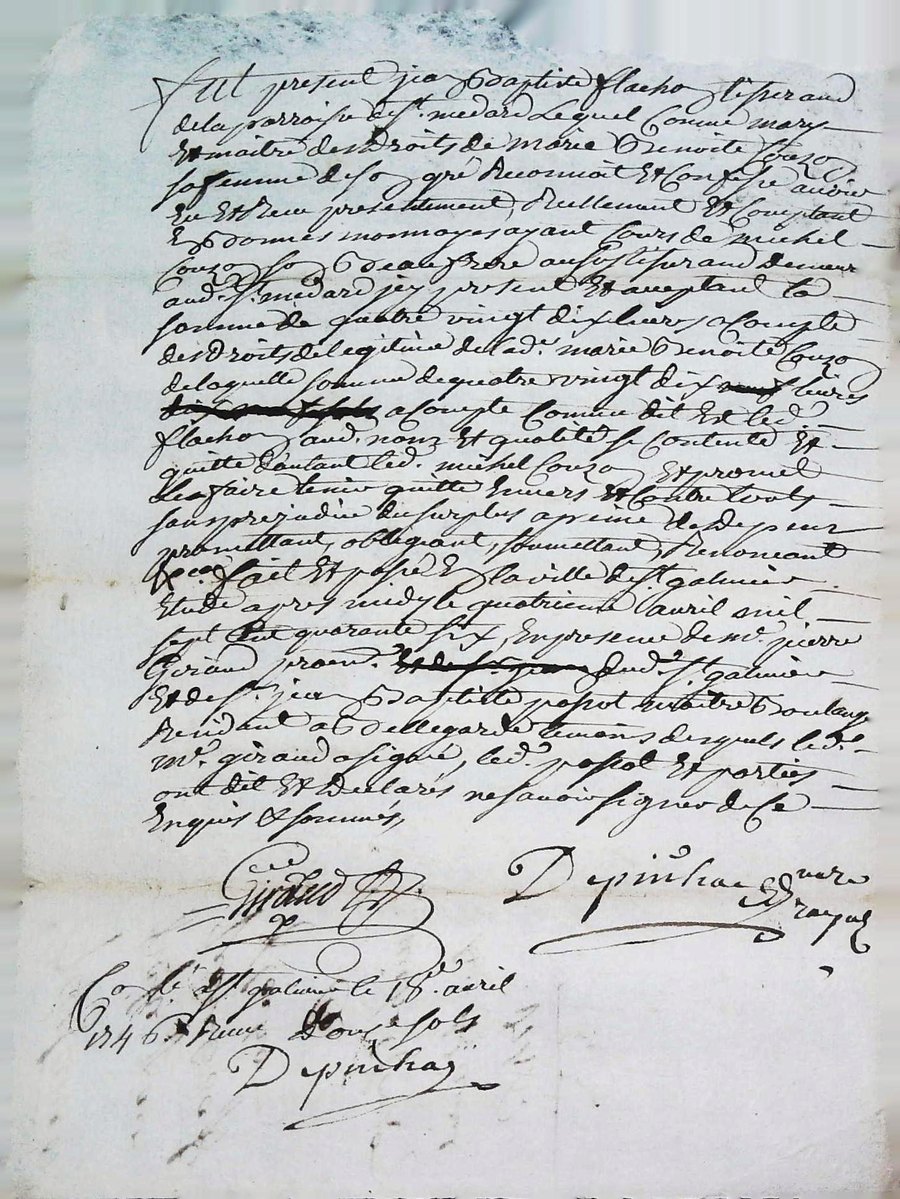 Fut present jean Baptiste flachon tisserand
de la parroisse de st. medard Lequel Comme mary
Et maitre des Droits de marie Benoite Couzon
sa femme de son gré Reconnoit Et Confesse avoir
Eu Et Receu presentement, Reellement Et Comptant
En bonnes monnoyes ayant Cours de michel
Couzon son Beaufrere aussy tisserand Demeur
aud. st. medard jcy present Et aceptant la
somme de quatre vingt dix livres a Compte
des Droits de legitime de lad. marie Benoite Couzon
de laquelle somme de quatre vingt dix livres
a Compte Comme dit Est led.
flachon aud. nonz Et qualité se Contente Et
quitte d'autant led. michel Couzon Et promet
L'en faire tenir quitte Envers Et Contre touts
sans prejudice du surplus a peine de Depens
promettant, obligeant, soumettant, Renonceant
fait Et passé En la ville de st. galmier
Etude apres midy le quatrieme avril mil
sept Cent quarante six, En presence de me. pierre
Giraud procur. dud. st. galmier
Et de sr. jean Baptiste postol maitre Boulanger
Residant a Bellegarde temoins desquels led.
me. giraud a signé, led. postol Et parties
ont dit Et Declarés ne savoir signer de Ce
Enquis & sommés,
Giraud
Depinhac nore
royal
Con lé a st. galmier le 18e. avril
1746 Receu Douze sols
Depinhac